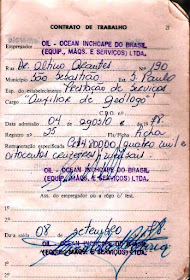 CONTRATO DE TRABALHO
Empregador OIL - OCEAN INCHCAPE DO BRASIL
(EQUIP., MAQS. E SERVIÇOS) LTDA.
Rua Dr. Altino Arantes Nº 190
Município São Sebastião Est. S. Paulo
Esp. do estabelecimento Prestação de Serviços
Cargo "Auxiliar de geólogo"
Data admissão 04 de agosto de 1978
Registro nº 25 Fls/Ficha Ficha
Remuneração especificada (quatro mil e
oitocentos cruzeiros) mensais
OIL - OCEAN INCHCAPE DO BRASIL
(EQUIP., MAQS. E SERVIÇOS) LTDA.
Ass. do empregador ou a rôgo c/ test.
1ª 2ª
Data saída 08 de setembro de 1978
OIL - OCEAN INCHCAPE DO BRASIL
(EQUIP., MAQS. E SERVIÇOS) LTDA.
1ª 2ª